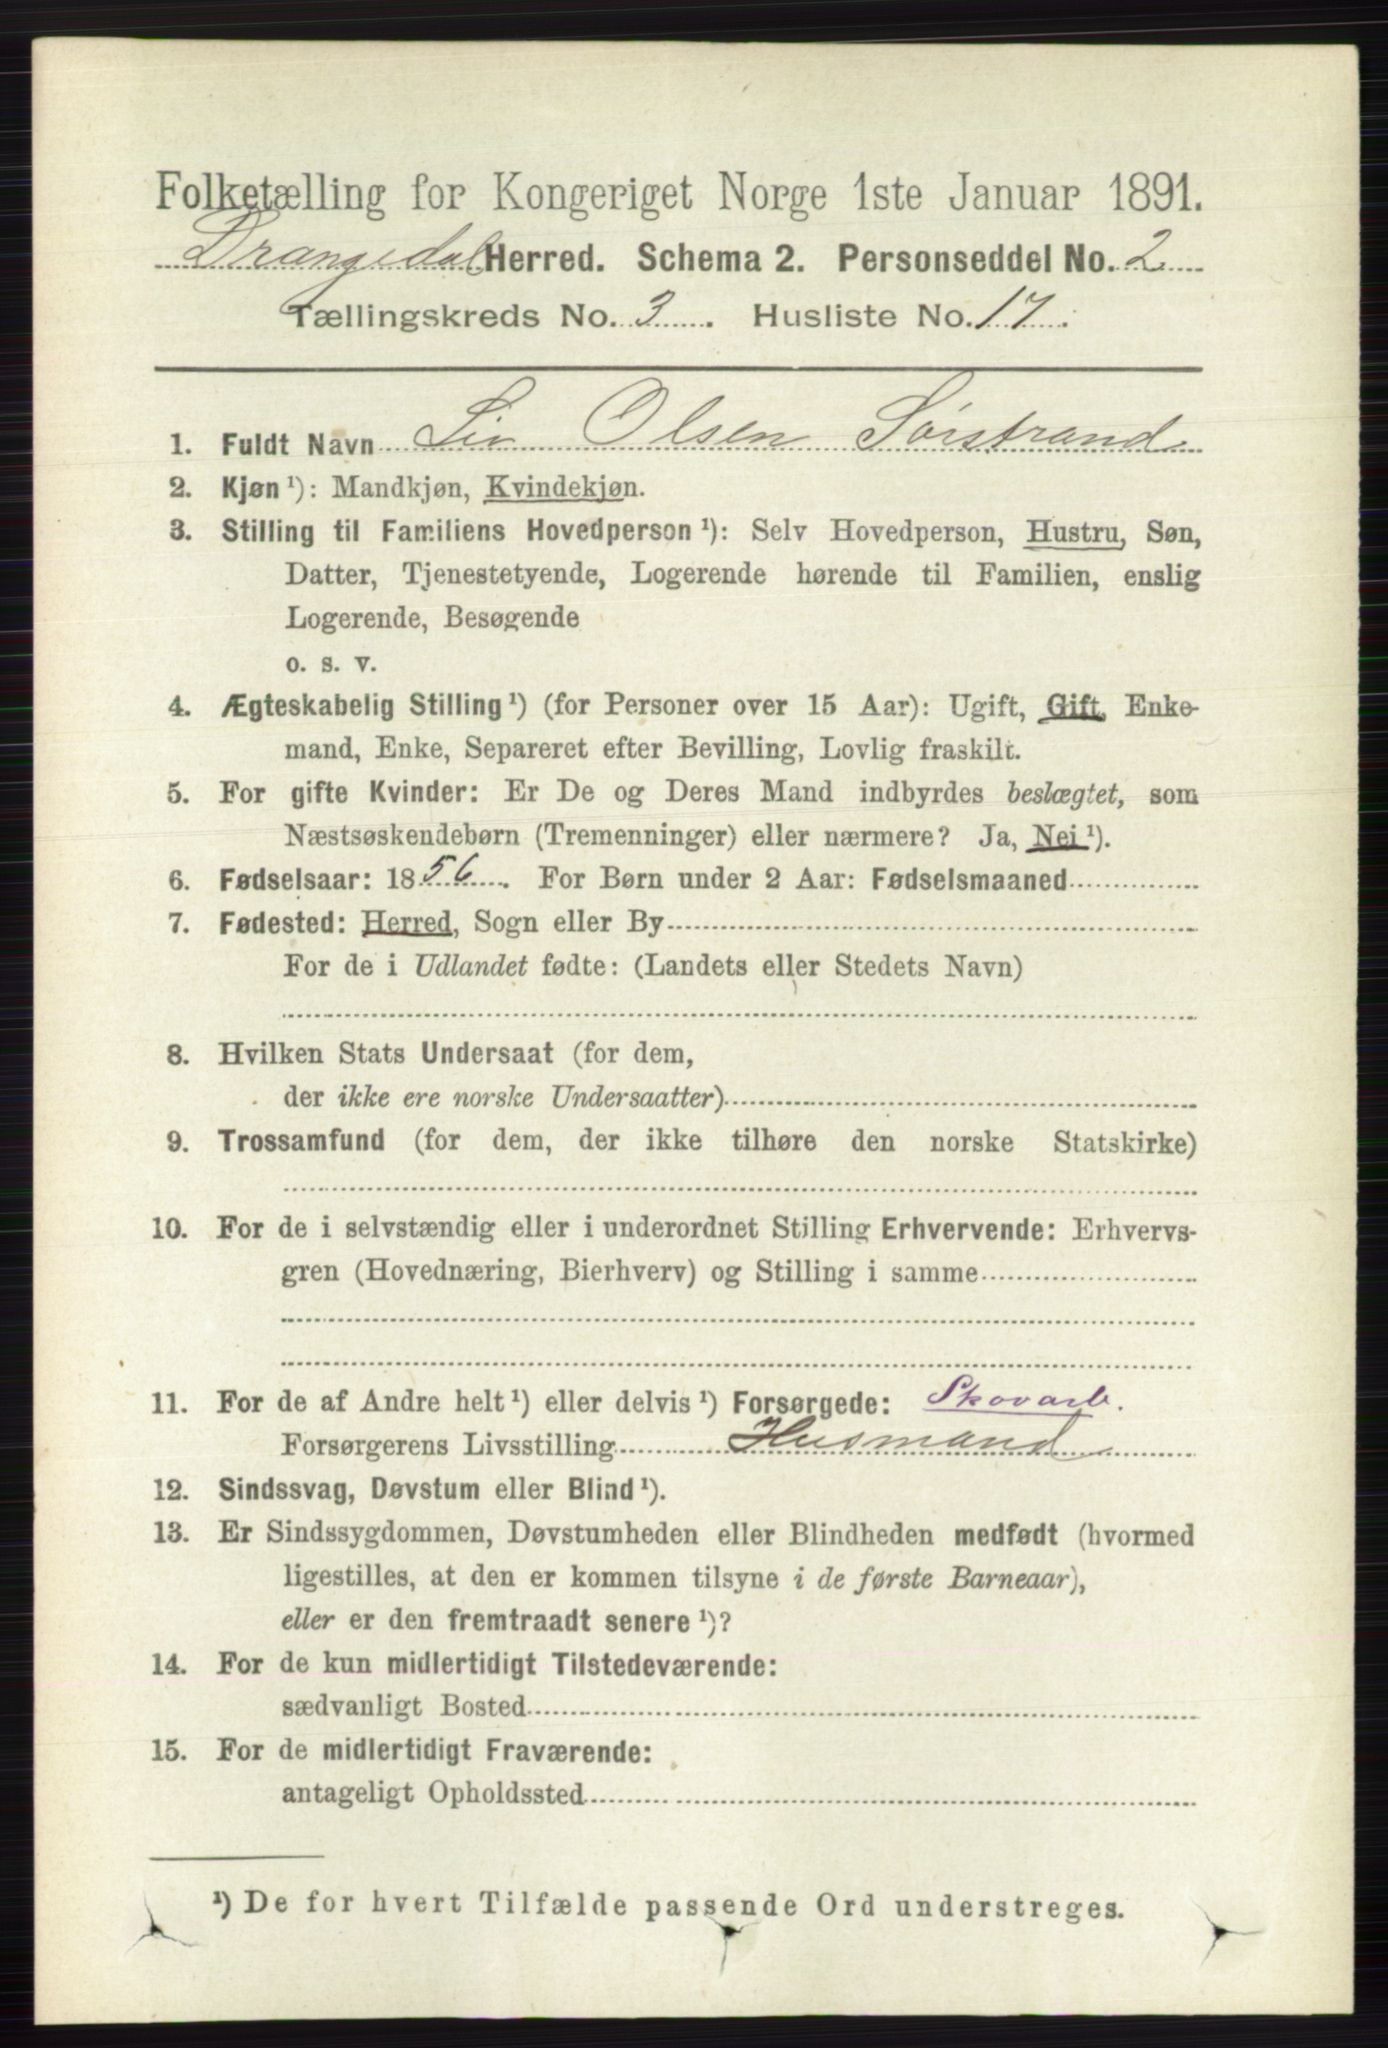 Folketælling for Kongeriget Norge 1ste Januar 1891.
Drangedal Herred. Schema 2. Personseddel No. 2
Tællingskreds No. 3. Husliste No. 17.
1. Fuldt Navn Liv Olsen Sørstrand
2. Kjøn ¹): Mandkjøn, Kvindekjøn.
3. Stilling til Familiens Hovedperson ¹): Selv Hovedperson, Hustru, Søn,
Datter, Tjenestetyende, Logerende hørende til Familien, enslig
Logerende, Besøgende
o. s. v.
4. Ægteskabelig Stilling ¹) (for Personer over 15 Aar): Ugift, Gift, Enke-
mand, Enke, Separeret efter Bevilling, Lovlig fraskilt.
5. For gifte Kvinder: Er De og Deres Mand indbyrdes beslægtet, som
Næstsøskendebørn (Tremenninger) eller nærmere? Ja, Nei ¹).
6. Fødselsaar: 1856. For Børn under 2 Aar: Fødselsmaaned
7. Fødested: Herred, Sogn eller By
For de i Udlandet fødte: (Landets eller Stedets Navn)
8. Hvilken Stats Undersaat (for dem,
der ikke ere norske Undersaatter)
9. Trossamfund (for dem, der ikke tilhøre den norske Statskirke)
10. For de i selvstændig eller i underordnet Stilling Erhvervende: Erhvervs-
gren (Hovednæring, Bierhverv) og Stilling i samme
11. For de af Andre helt ¹) eller delvis ¹) Forsørgede: Skovarb.
Forsørgerens Livsstilling Husmand
12. Sindssvag, Døvstum eller Blind ¹).
13. Er Sindssygdommen, Døvstumheden eller Blindheden medfødt (hvormed
ligestilles, at den er kommen tilsyne i de første Barneaar),
eller er den fremtraadt senere ¹)?
14. For de kun midlertidigt Tilstedeværende:
sædvanligt Bosted
15. For de midlertidigt Fraværende:
antageligt Opholdssted
¹) De for hvert Tilfælde passende Ord understreges.